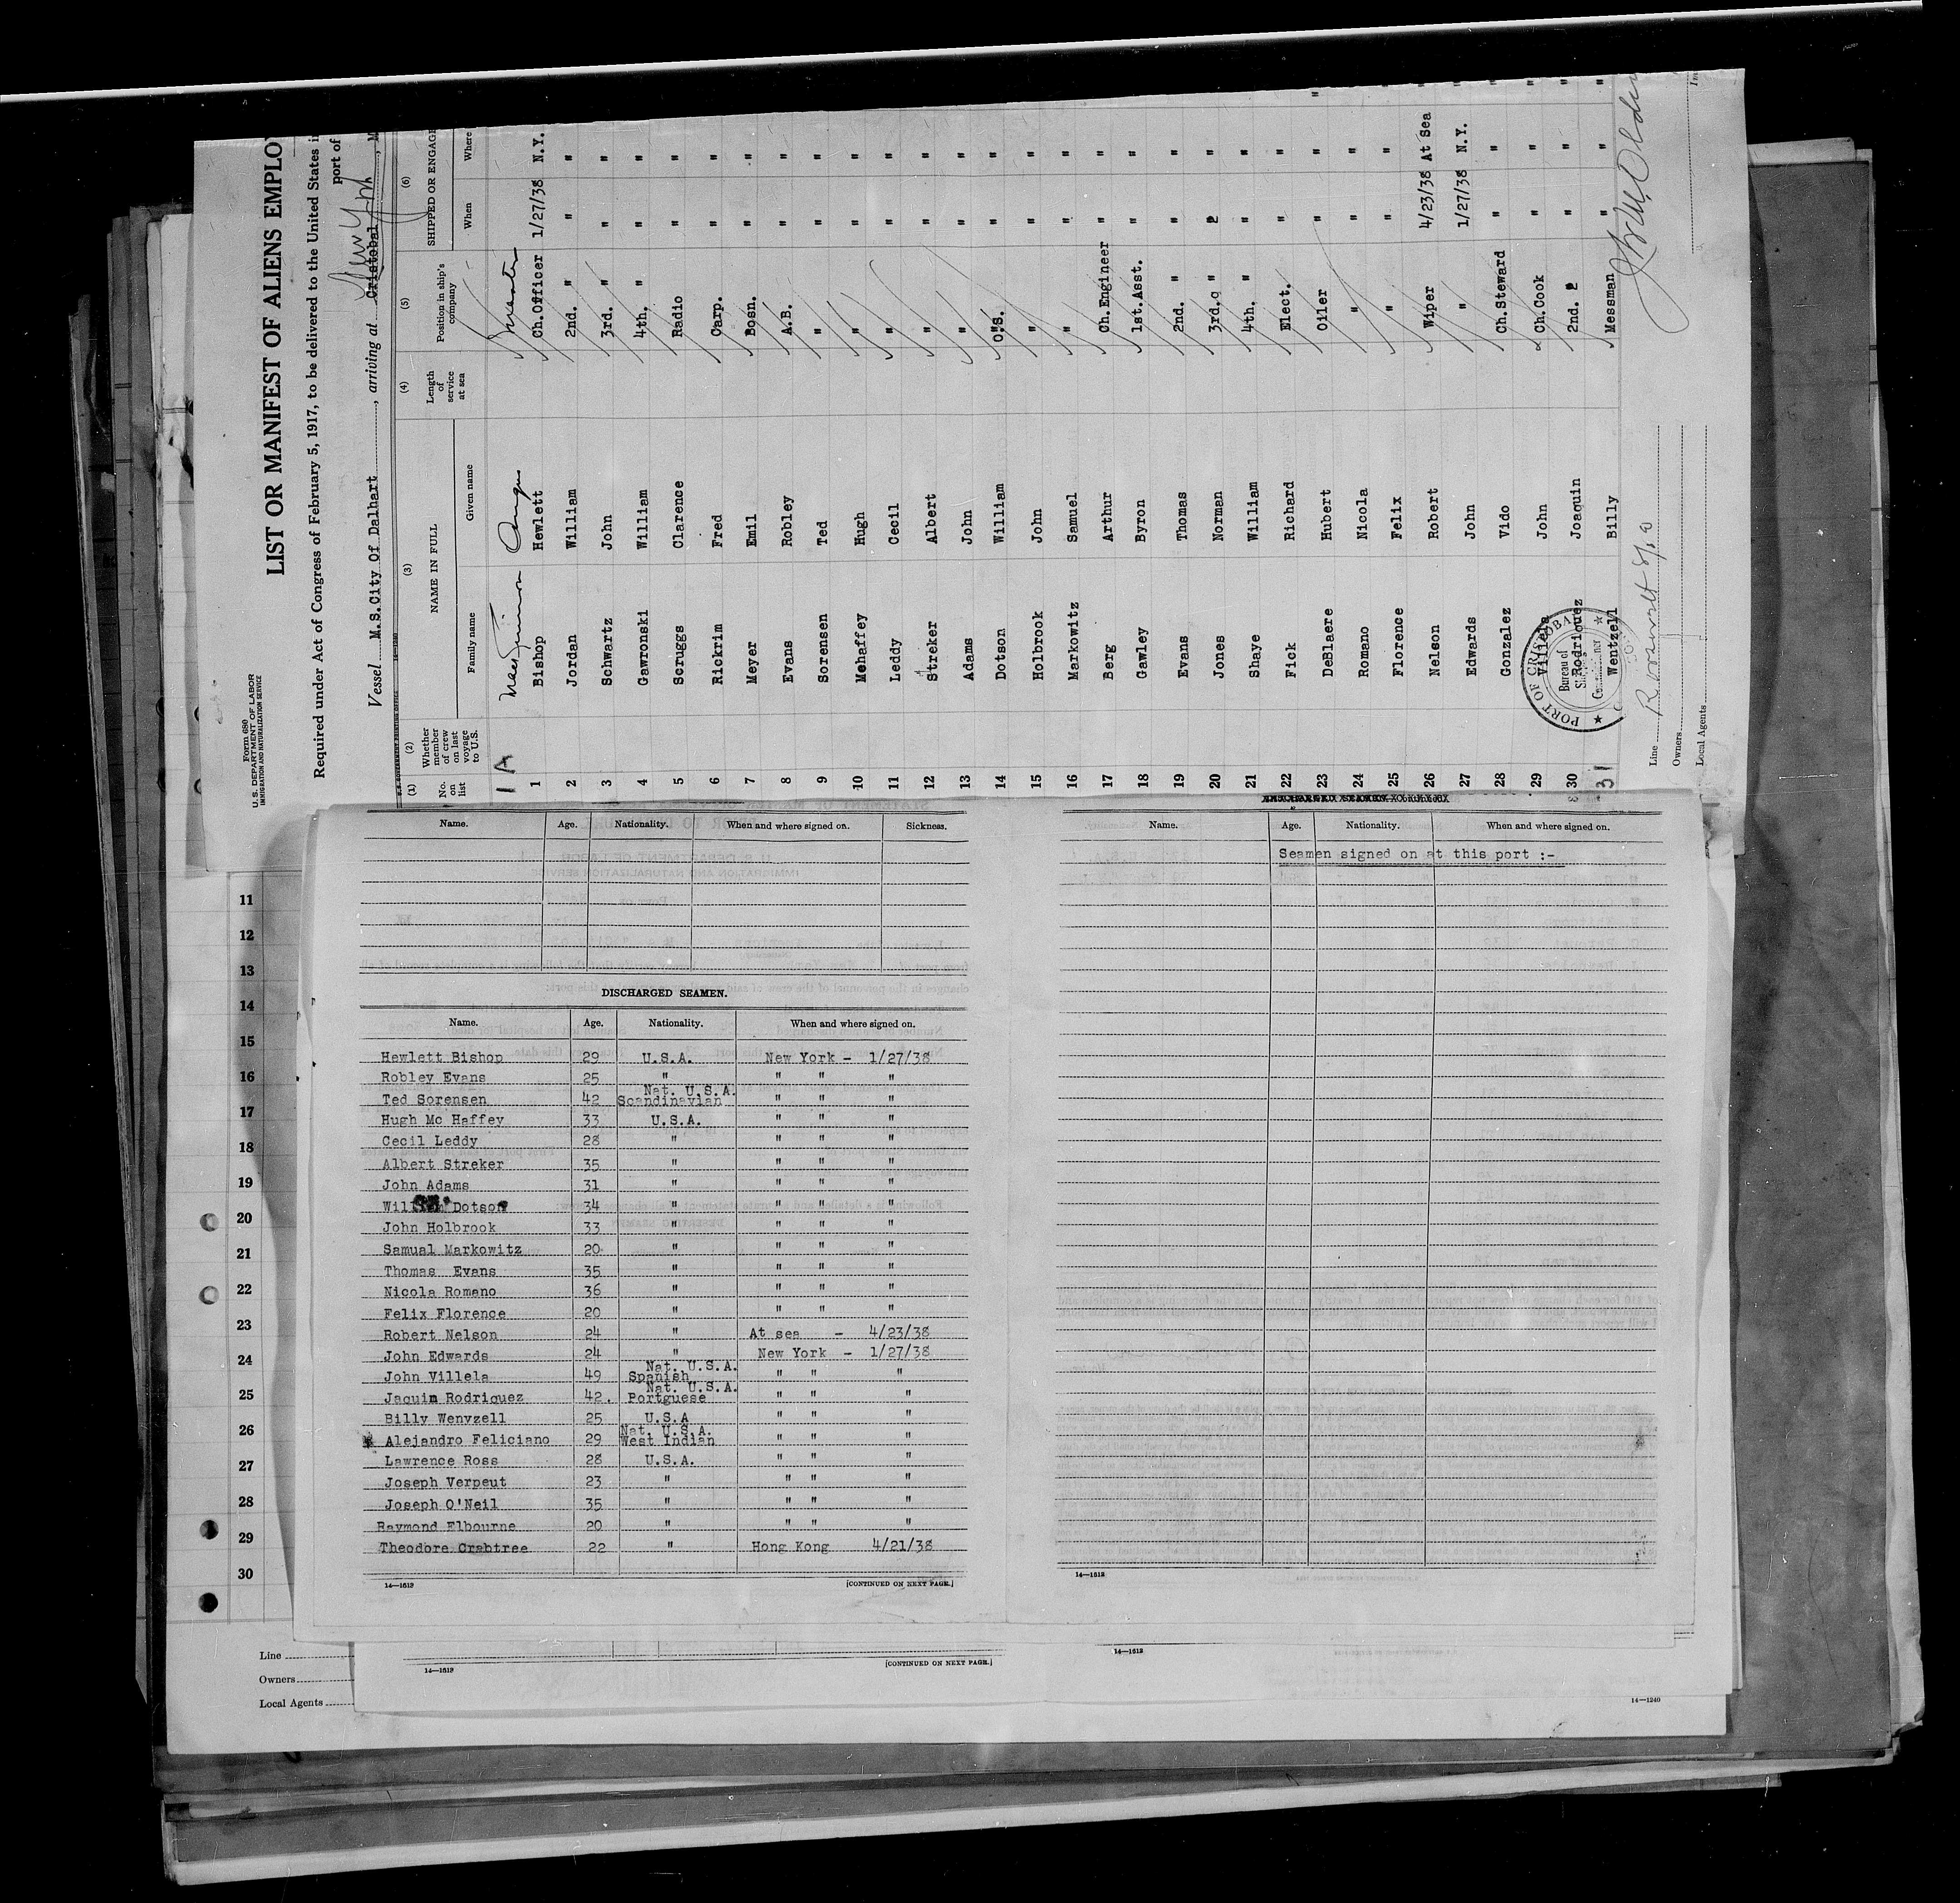 Form 680
U. S. DEPARTMENT OF LABOR
IMMIGRATION AND NATURALIZATION SERVICE
LIST OR MANIFEST OF ALIENS EMPLO
Required under Act of Congress of February 5, 1917, to be delivered to the United States i
port of
New York
Vessel M.S.City Of Dalhart, arriving at Cristobal, M
(1) (2) (3) (4) (5) (6)
No. on list Whether member of crew on last voyage to U.S. NAME IN FULL Length of service at sea Position in ship's company SHIPPED OR ENGAGE
Family name Given name When Where
1 A Angus Master
1 Bishop Hewlett Ch.Officer 1/27/38 N.Y.
2 Jordan William 2nd. " " "
3 Schwartz John 3rd. " " "
4 Gawronski William 4th. " " "
5 Scruggs Clarence Radio " "
6 Rickrim Fred Carp. " "
7 Meyer Emil Bosn. " "
8 Evans Robley A.B. " "
9 Sorensen Ted " " "
10 Mehaffey Hugh " " "
11 Leddy Cecil " " "
12 Streker Albert " " "
13 Adams John " " "
14 Dotson William O.S. " "
15 Holbrook John " " "
16 Markowitz Samuel " " "
17 Berg Arthur Ch.Engineer " "
18 Gawley Byron 1st.Asst. " "
19 Evans Thomas 2nd. " " "
20 Jones Norman 3rd. " "
21 Shaye William 4th. " " "
22 Fick Richard Elect. " "
23 DeBlaere Hubert Oiler " " "
24 Romano Nicola " " "
25 Florence Felix " " "
26 Nelson Robert Wiper 4/23/38 At Sea "
27 Edwards John " 1/27/38 N.Y. "
28 Gonzalez Vido Ch.Steward " " "
29 Villela John Ch.Cook " " "
30 Rodriquez Joaquin 2nd. " " "
31 Wentzell Billy Messman " " "
PORT OF CRISTOBAL
Bureau of
Line Roosevelt S/S
Owners
Local Agents
Name. Age. Nationality. When and where signed on. Sickness.
DISCHARGED SEAMEN.
Name. Age. Nationality. When and where signed on.
Hewlett Bishop 29 U.S.A. New York - 1/27/38
Robley Evans 25 " " " "
Ted Sorensen 42 Nat. U.S.A. Scandinavian " " "
Hugh Mc Haffey 33 U.S.A. " " "
Cecil Leddy 28 " " " "
Albert Streker 35 " " " "
John Adams 31 " " " "
William Dotson 34 " " " "
John Holbrook 33 " " " "
Samual Markowitz 20 " " " "
Thomas Evans 35 " " " "
Nicola Romano 36 " " " "
Felix Florence 20 " " " "
Robert Nelson 24 " At sea - 4/23/38
John Edwards 24 " New York - 1/27/38
John Villela 49 Nat. U.S.A. Spanish " " "
Jaquin Rodriquez 42. Nat. U.S.A. Portguese " " "
Billy Wenvzell 25 U.S.A " " "
Alejandro Feliciano 29 Nat. U.S.A. West Indian " " "
Lawrence Ross 28 U.S.A. " " "
Joseph Verpeut 23 " " " "
Joseph O'Neil 35 " " " "
Raymond Elbourne 20 " " " "
Theodore Crabtree 22 " Hong Kong 4/21/38
14—1512 [CONTINUED ON NEXT PAGE.]
Name. Age. Nationality. When and where signed on.
Seamen signed on at this port :-
14—1512
11
12
13
14
15
16
17
18
19
20
21
22
23
24
25
26
27
28
29
30
Line
Owners
Local Agents
14—1512 [CONTINUED ON NEXT PAGE.]
14—1512
14—1240